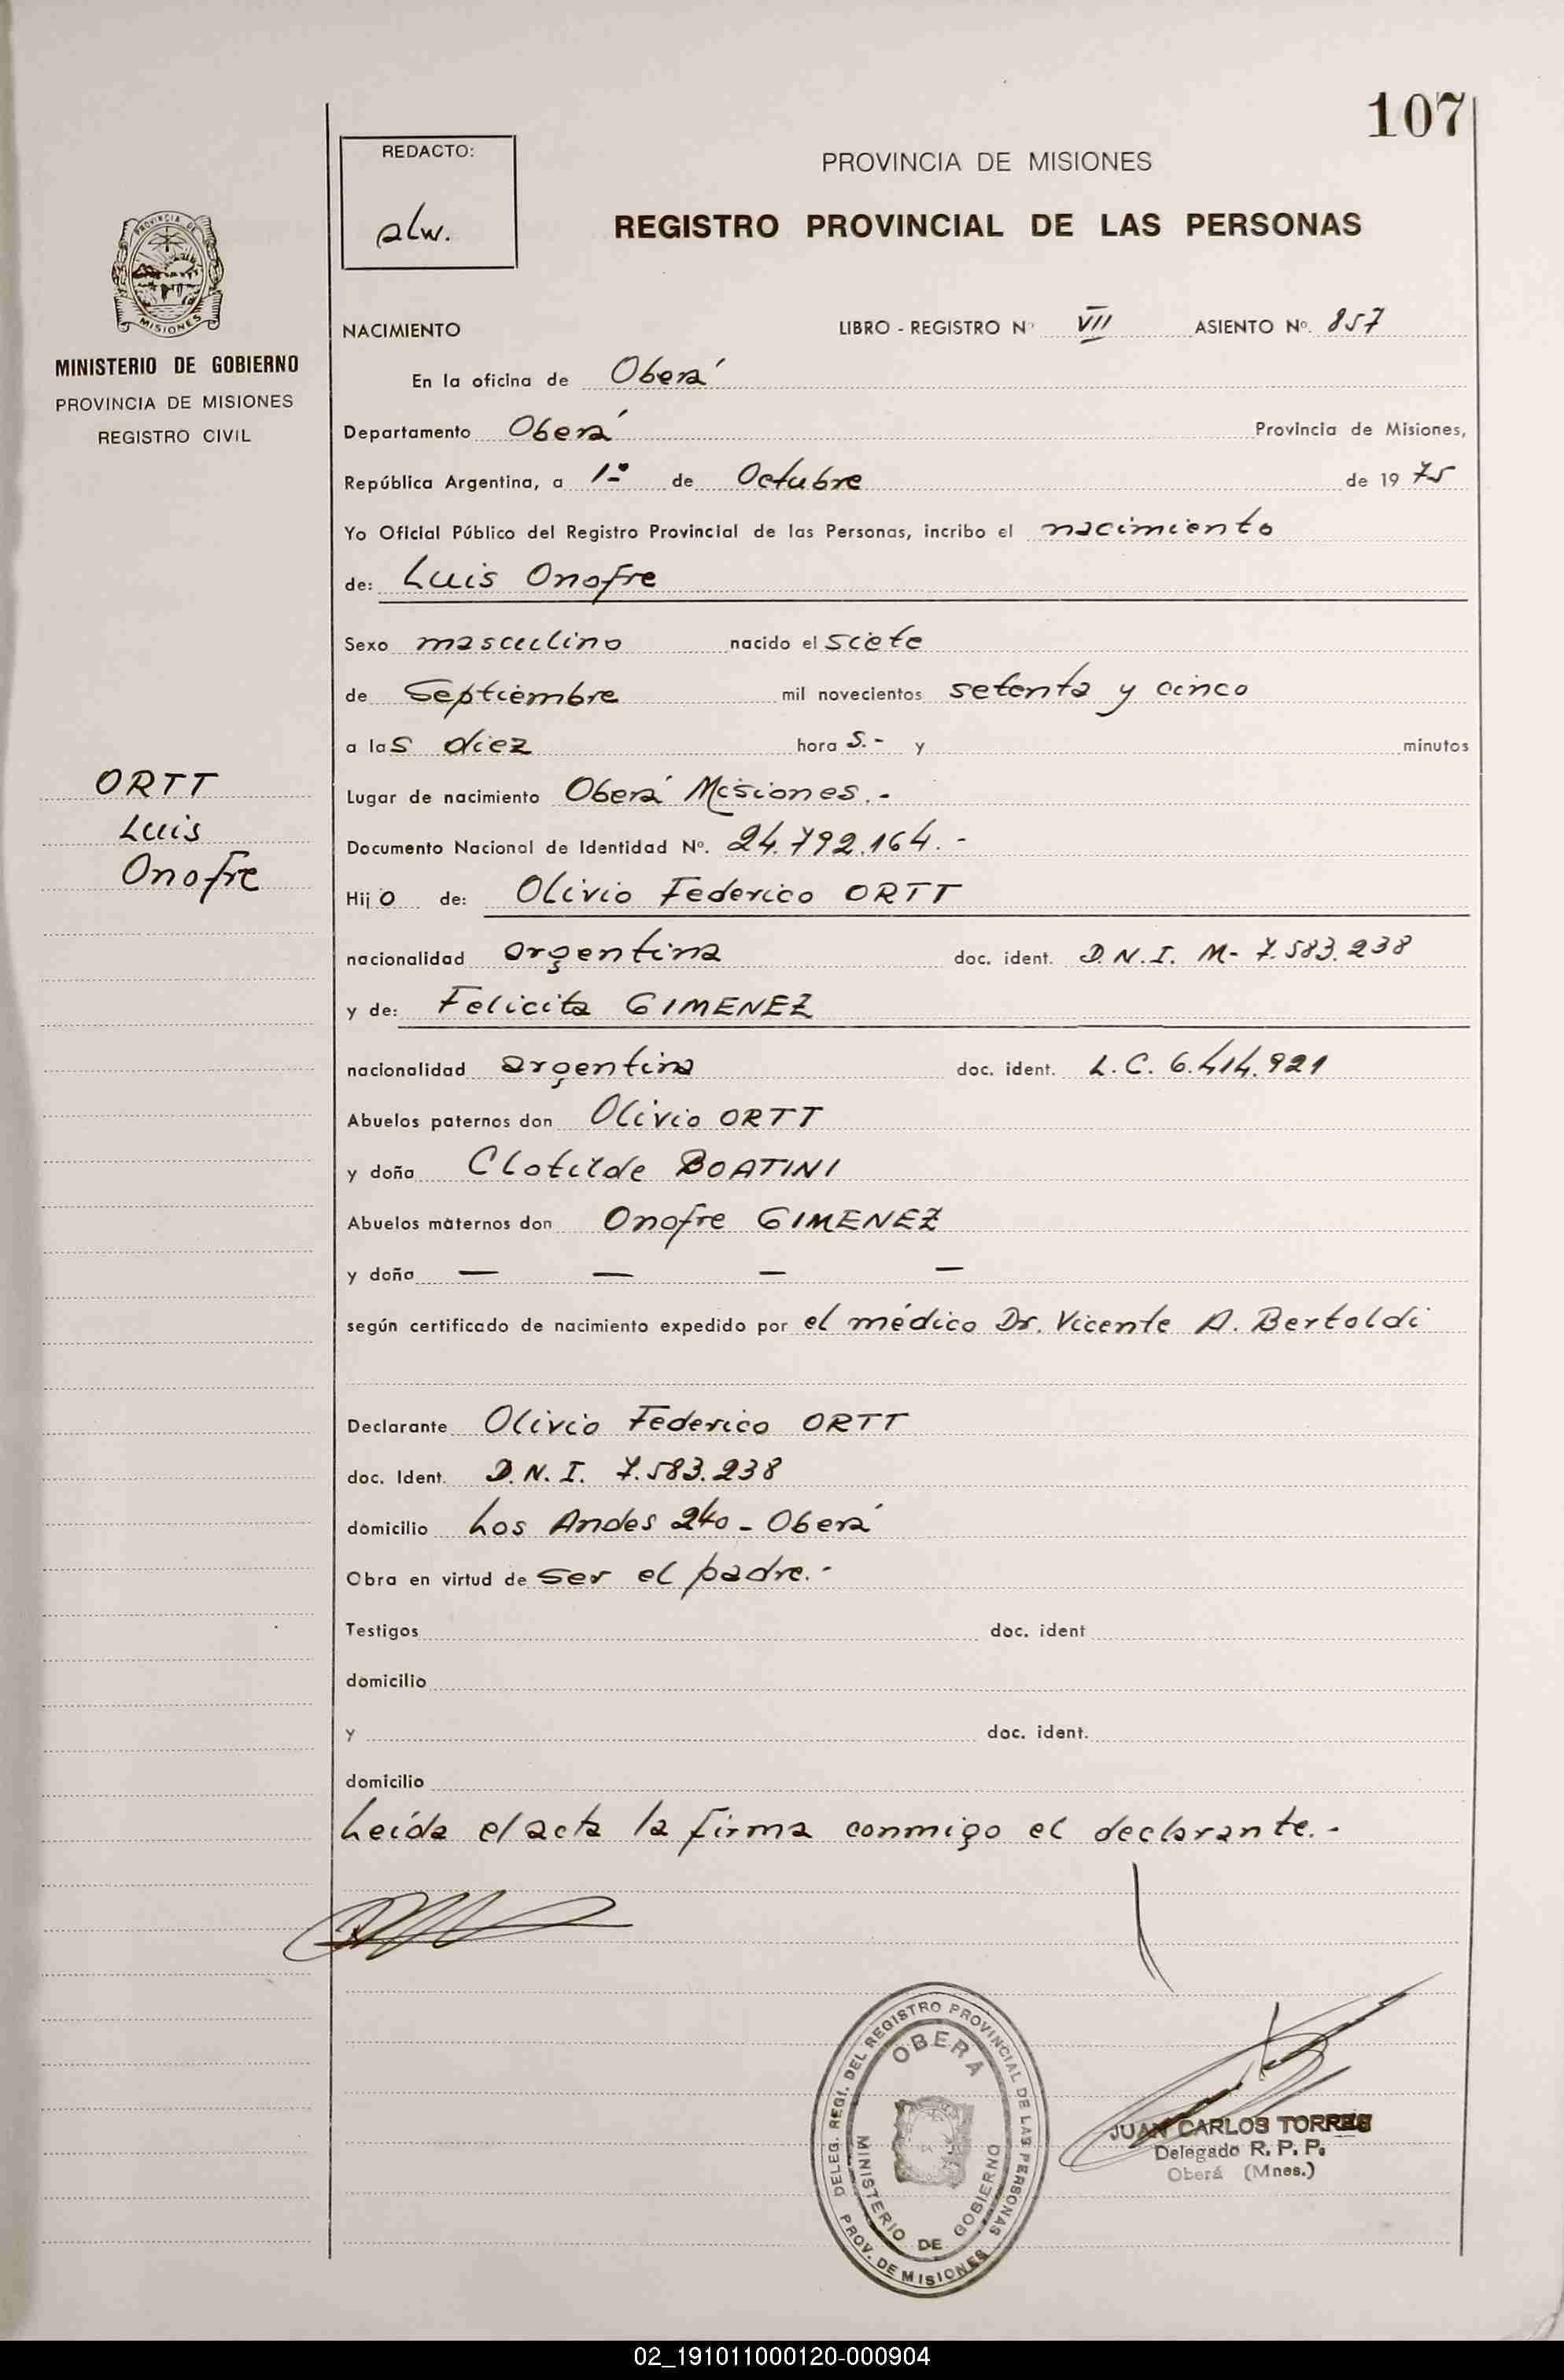 107
REDACTO:
alw.
PROVINCIA DE MISIONES
REGISTRO PROVINCIAL DE LAS PERSONAS
PROVINCIA DE
MISIONES
MINISTERIO DE GOBIERNO
PROVINCIA DE MISIONES
REGISTRO CIVIL
NACIMIENTO LIBRO - REGISTRO Nº VII ASIENTO Nº. 857
En la oficina de Oberá
Departamento Oberá Provincia de Misiones,
República Argentina, a 1º de Octubre de 1975
Yo Oficial Público del Registro Provincial de las Personas, incribo el nacimiento
de: Luis Onofre
Sexo masculino nacido el siete
de Septiembre mil novecientos setenta y cinco
a las diez hora s.- y minutos
ORTT
Luis
Onofre
Lugar de nacimiento Oberá Misiones.-
Documento Nacional de Identidad Nº. 24.792.164.-
Hijo de: Olivio Federico ORTT
nacionalidad argentina doc. ident. D.N.I. M- 7.583.238
y de: Felicita GIMENEZ
nacionalidad argentina doc. ident. L.C. 6.414.921
Abuelos paternos don Olivio ORTT
y doña Clotilde BOATINI
Abuelos maternos don Onofre GIMENEZ
y doña — — — —
según certificado de nacimiento expedido por el médico Dr. Vicente A. Bertoldi
Declarante Olivio Federico ORTT
doc. Ident. D.N.I. 7.583.238
domicilio Los Andes 240 - Oberá
Obra en virtud de ser el padre.-
Testigos doc. ident
domicilio
y doc. ident.
domicilio
Leída el acta la firma conmigo el declarante.-
DELEG. REGI. DEL REGISTRO PROVINCIAL DE LAS PERSONAS
OBERA
MINISTERIO DE GOBIERNO
PROV. DE MISIONES
JUAN CARLOS TORRES
Delegado R. P. P.
Oberá (Mnes.)
02_191011000120-000904